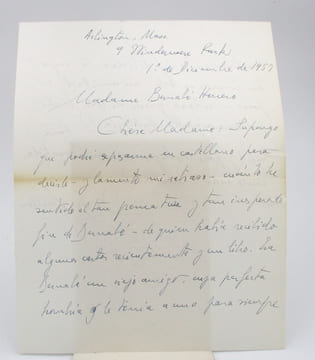 Arlington, Mass
9 Windermere Park
1º de Diciembre de 1957
Madame Bernabé Herrero
Chère Madame: Supongo
que podré expresarme en castellano para
decirle - y lamento mi retraso - cuánto he
sentido el tan prematuro y tan inesperado
fin de Bernabé - de quien había recibido
algunas cartas recientemente y un libro. Era
Bernabé un viejo amigo, cuya perfecta
hombría le tenía a uno para siempre